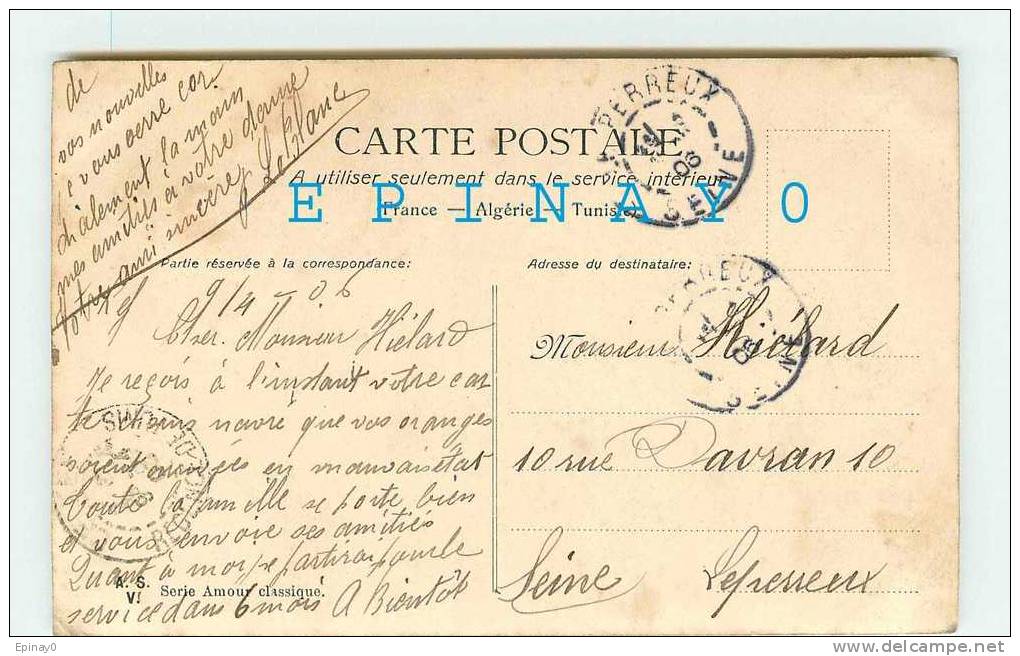 CARTE POSTALE
A utiliser seulement dans le service intérieur
France — Algérie — Tunisie
E P I N A Y 0
LE PERREUX
SEINE
Partie réservée à la correspondance:
Adresse du destinataire:
9/4-06
Cher Monsieur Hiélard
Je reçois à l'instant votre car
te je suis navré que vos oranges
soient arrivées en mauvais état
Toute la famille se porte bien
et vous envoie ses amitiés
Quant à moi je partirai pour le
service dans 6 mois A Bientôt
de
vos nouvelles
je vous serre cor
dialement la main
mes amitiés à votre dame
Votre ami sincère
Leblanc
Monsieur Hiélard
10 rue Davran 10
Seine Leperreux
PERREUX
A. S.
V.
Serie Amour classique.
Epinay0
www.delcampe.net